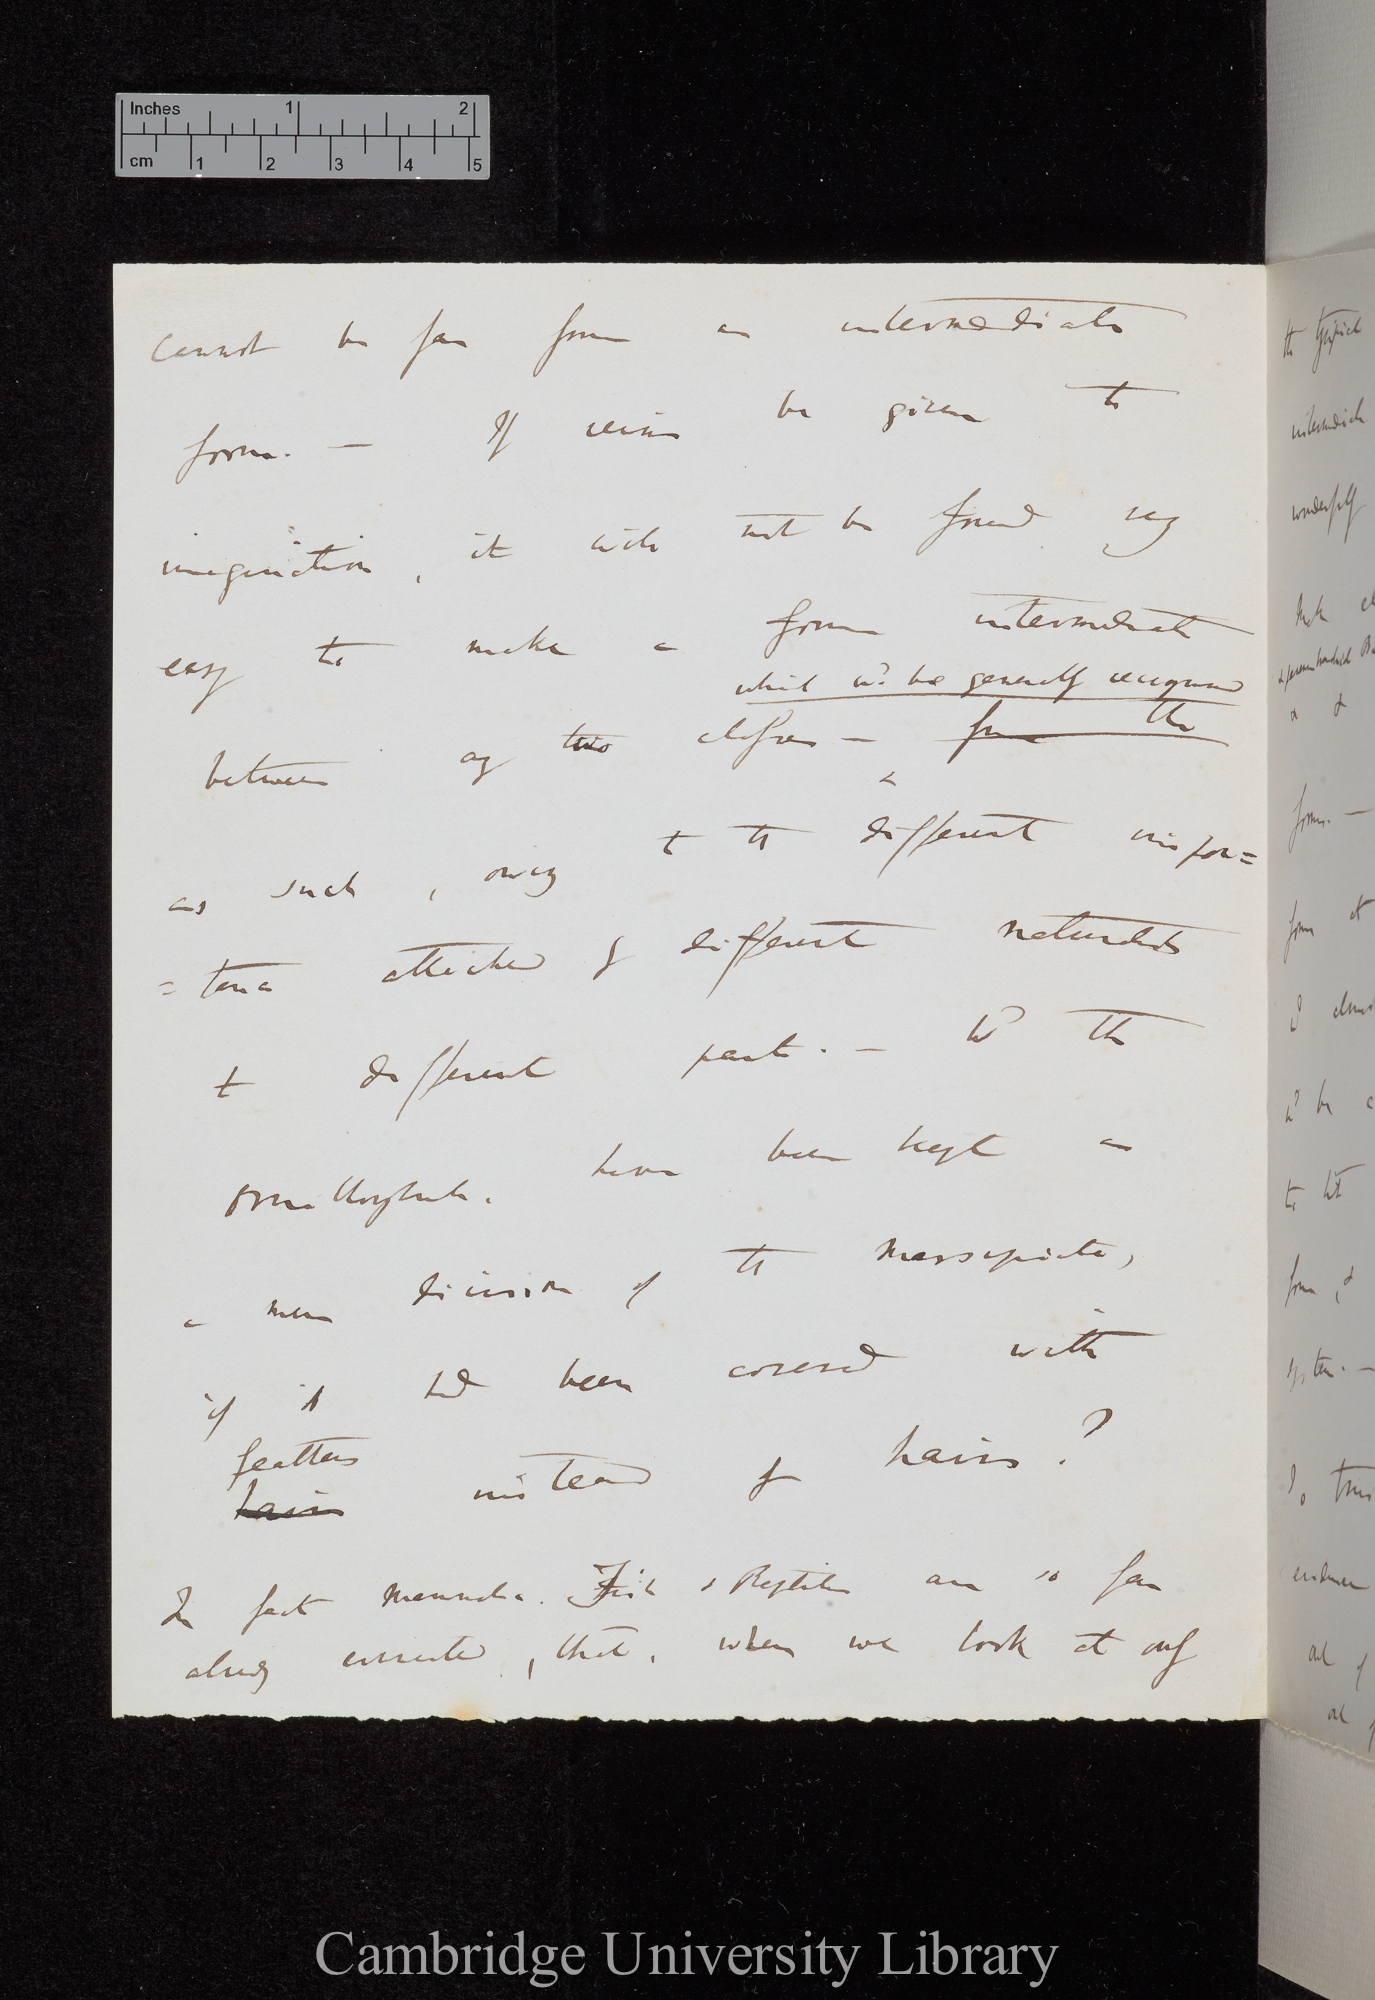 Inches 1 2
cm 1 2 3 4 5
cannot be far from an intermediate
form. — If reins be given to
imagination, it will not be found very
easy to make a form intermediate
which wd be generally recognised
between any two classes — from the
as such, owing to the different impor=
=tance attached by different naturalists
to different parts. — Wd the
Ornithorhynch. have been kept as
a mere division of the Marsupiata,
if it had been covered with
feathers
hairs instead of hairs?
In fact Mammalia. Fish & Reptiles are so far
already connected, that, when we look at only
the typical
intermediate
wonderfully
form. —
form
to
form, &
system. —
evidence
out of
Cambridge University Library